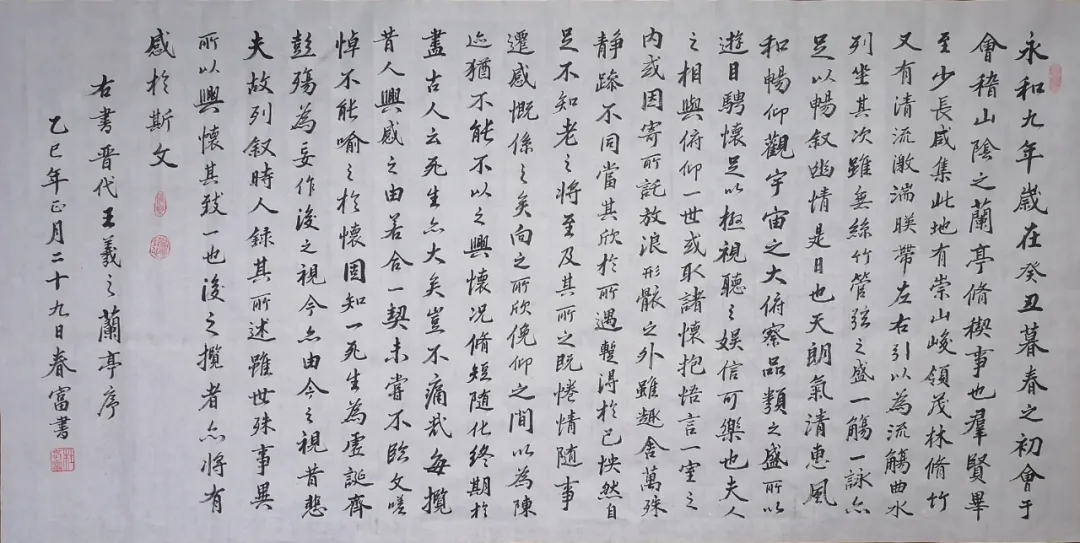 永和九年歲在癸丑暮春之初會于
會稽山陰之蘭亭脩稧事也羣賢畢
至少長咸集此地有崇山峻領茂林脩竹
又有清流激湍暎帶左右引以為流觴曲水
列坐其次雖無絲竹管弦之盛一觴一詠亦
足以暢叙幽情是日也天朗氣清惠風
和暢仰觀宇宙之大俯察品類之盛所以
遊目騁懷足以極視聽之娛信可樂也夫人
之相與俯仰一世或取諸懷抱悟言一室之
內或因寄所託放浪形骸之外雖趣舍萬殊
靜躁不同當其欣於所遇暫得於己怏然自
足不知老之將至及其所之既惓情隨事
遷感慨係之矣向之所欣俛仰之間以為陳
迹猶不能不以之興懷況脩短隨化終期於
盡古人云死生亦大矣豈不痛哉每攬
昔人興感之由若合一契未嘗不臨文嗟
悼不能喻之於懷固知一死生為虛誕齊
彭殤為妄作後之視今亦由今之視昔悲
夫故列叙時人錄其所述雖世殊事異
所以興懷其致一也後之攬者亦將有
感於斯文
右書晉代王羲之蘭亭序
乙巳年正月二十九日春富書